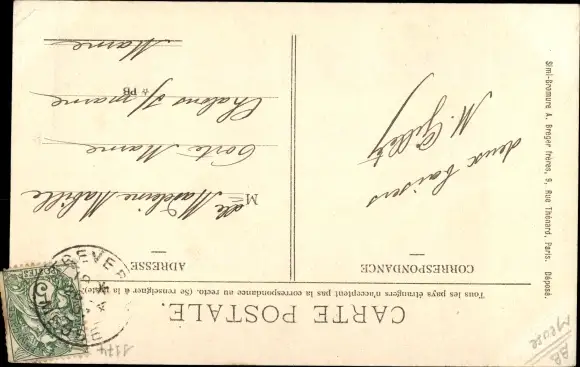 CARTE POSTALE.
Tous les pays étrangers n'acceptent pas la correspondance au recto. (Se renseigner à la
CORRESPONDANCE
deux baisers
M. Gillet
ADRESSE
Melle Madeleine Mabille
Porte Marne
Chalons s/ marne
Marne
☆ PB
Simi-Bromure A. Breger frères, 9, Rue Thénard, Paris. Déposé.
1174
Meuse
BB